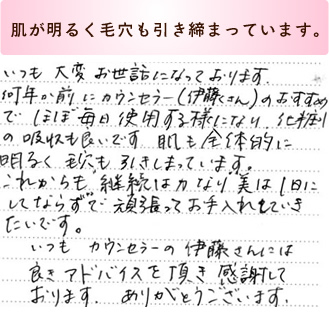 肌が明るく毛穴も引き締まっています。
いつも 大変お世話になっております。
何年か前にカウンセラー(伊藤さん)のおすすめ
で ほぼ毎日使用する様になり、化粧水
の吸収も良いです。肌も全体的に
明るく毛穴も引きしまっています。
これからも"継続は力なり、美は1日に
してならず"で頑張ってお手入れしていき
たいです。
いつも カウンセラーの伊藤さんには
良きアドバイスを頂き 感謝して
おります。ありがとうございます。